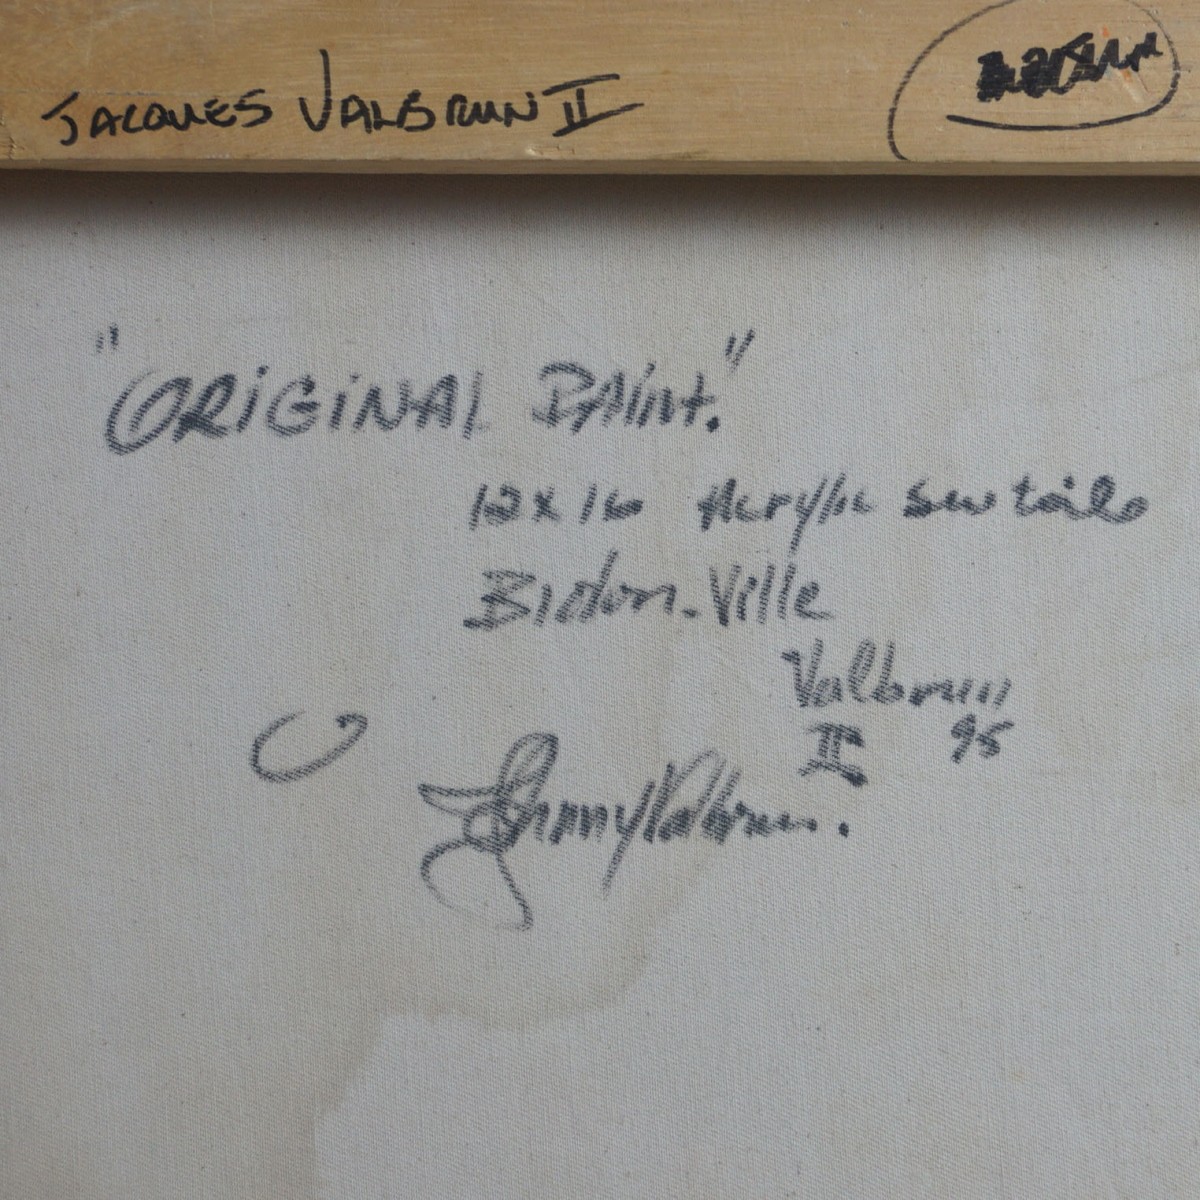 JACQUES VALBRUN II
"ORiGiNAL PAiNt."
12x16 Acrylic sur toile
Bidon-Ville
Valbrun
II 95